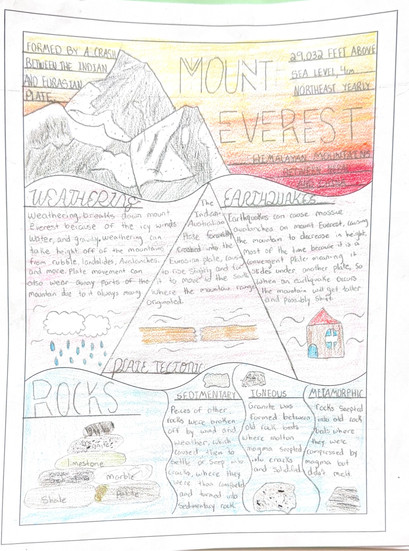 FORMED BY A CRASH
BETWEEN THE INDIAN
AND EURASIAN
PLATE
MOUNT
EVEREST
29,032 FEET ABOVE
SEA LEVEL, 4cm
NORTHEAST YEARLY
HEMALAYAN MOUNTAINS
BETWEEN NEPAL
WEATHERING
Weathering, breaks down mount
Everest because of the icy winds
water, and gravity weathering
take height off of the mountains
from rubble, landslides, Avalanches,
and more. Plate movement can
also wear away parts of the
mountain do to it always moving
The
Indian
Australian
Plate
crashed into the
Eurasian plate, causing
to rise slightly and for
it to move
where the mountain range
originated.
PLATE TECTONIC
EARTHQUAKES
Earthquakes can cause massive
Avalanches on mount Everest, causing
the mountain to decrease in height.
Most of the time because it is a
convergent plate meaning it
slides under another plate, so
when an earthquake occurs
the mountain will get taller
and possibly shift
ROCKS
limestone
marble
Shale
SEDIMENTARY
Peices of other
rocks were broken
off by wind and
weather, which
caused them to
settle or seep into
cracks, where they
were than compacted
and turned into
sedimentary rock
IGNEOUS
Granite was
formed between
old rock beds
where molten
magma seeped
into cracks
and solidified
METAMORPHIC
rocks seeped
into old rock
beds where
they were
compressed by
magma but
didn't melt